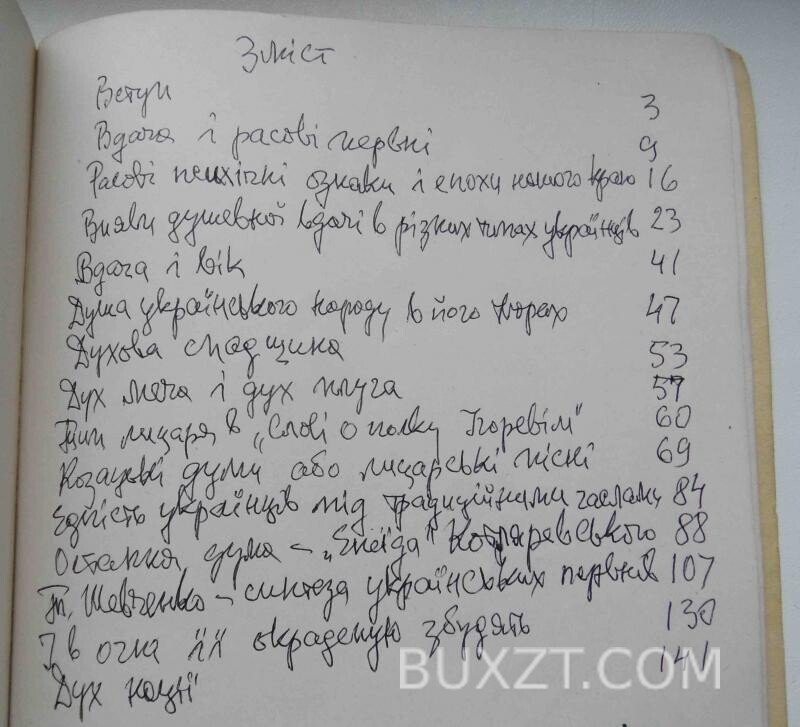 Зміст
Вступ 3
Вдача і расові первні 9
Расові психічні ознаки і епохи нашого краю 16
Вияви душевної вдачі в різних типах українців 23
Вдача і вік 41
Душа українського народу в його творах 47
Духова спадщина 53
Дух меча і дух плуга 57
Тип лицаря в „Слові о полку Ігоревім" 60
Козацькі думи або лицарські пісні 69
Єдність українців під традиційними гаслами 84
Остання дума – „Енеїда" Котляревського 88
Т. Шевченко – синтеза українських первнів 107
І в огні її окраденую збудять 130
Дух нації 141
BUXZT.COM